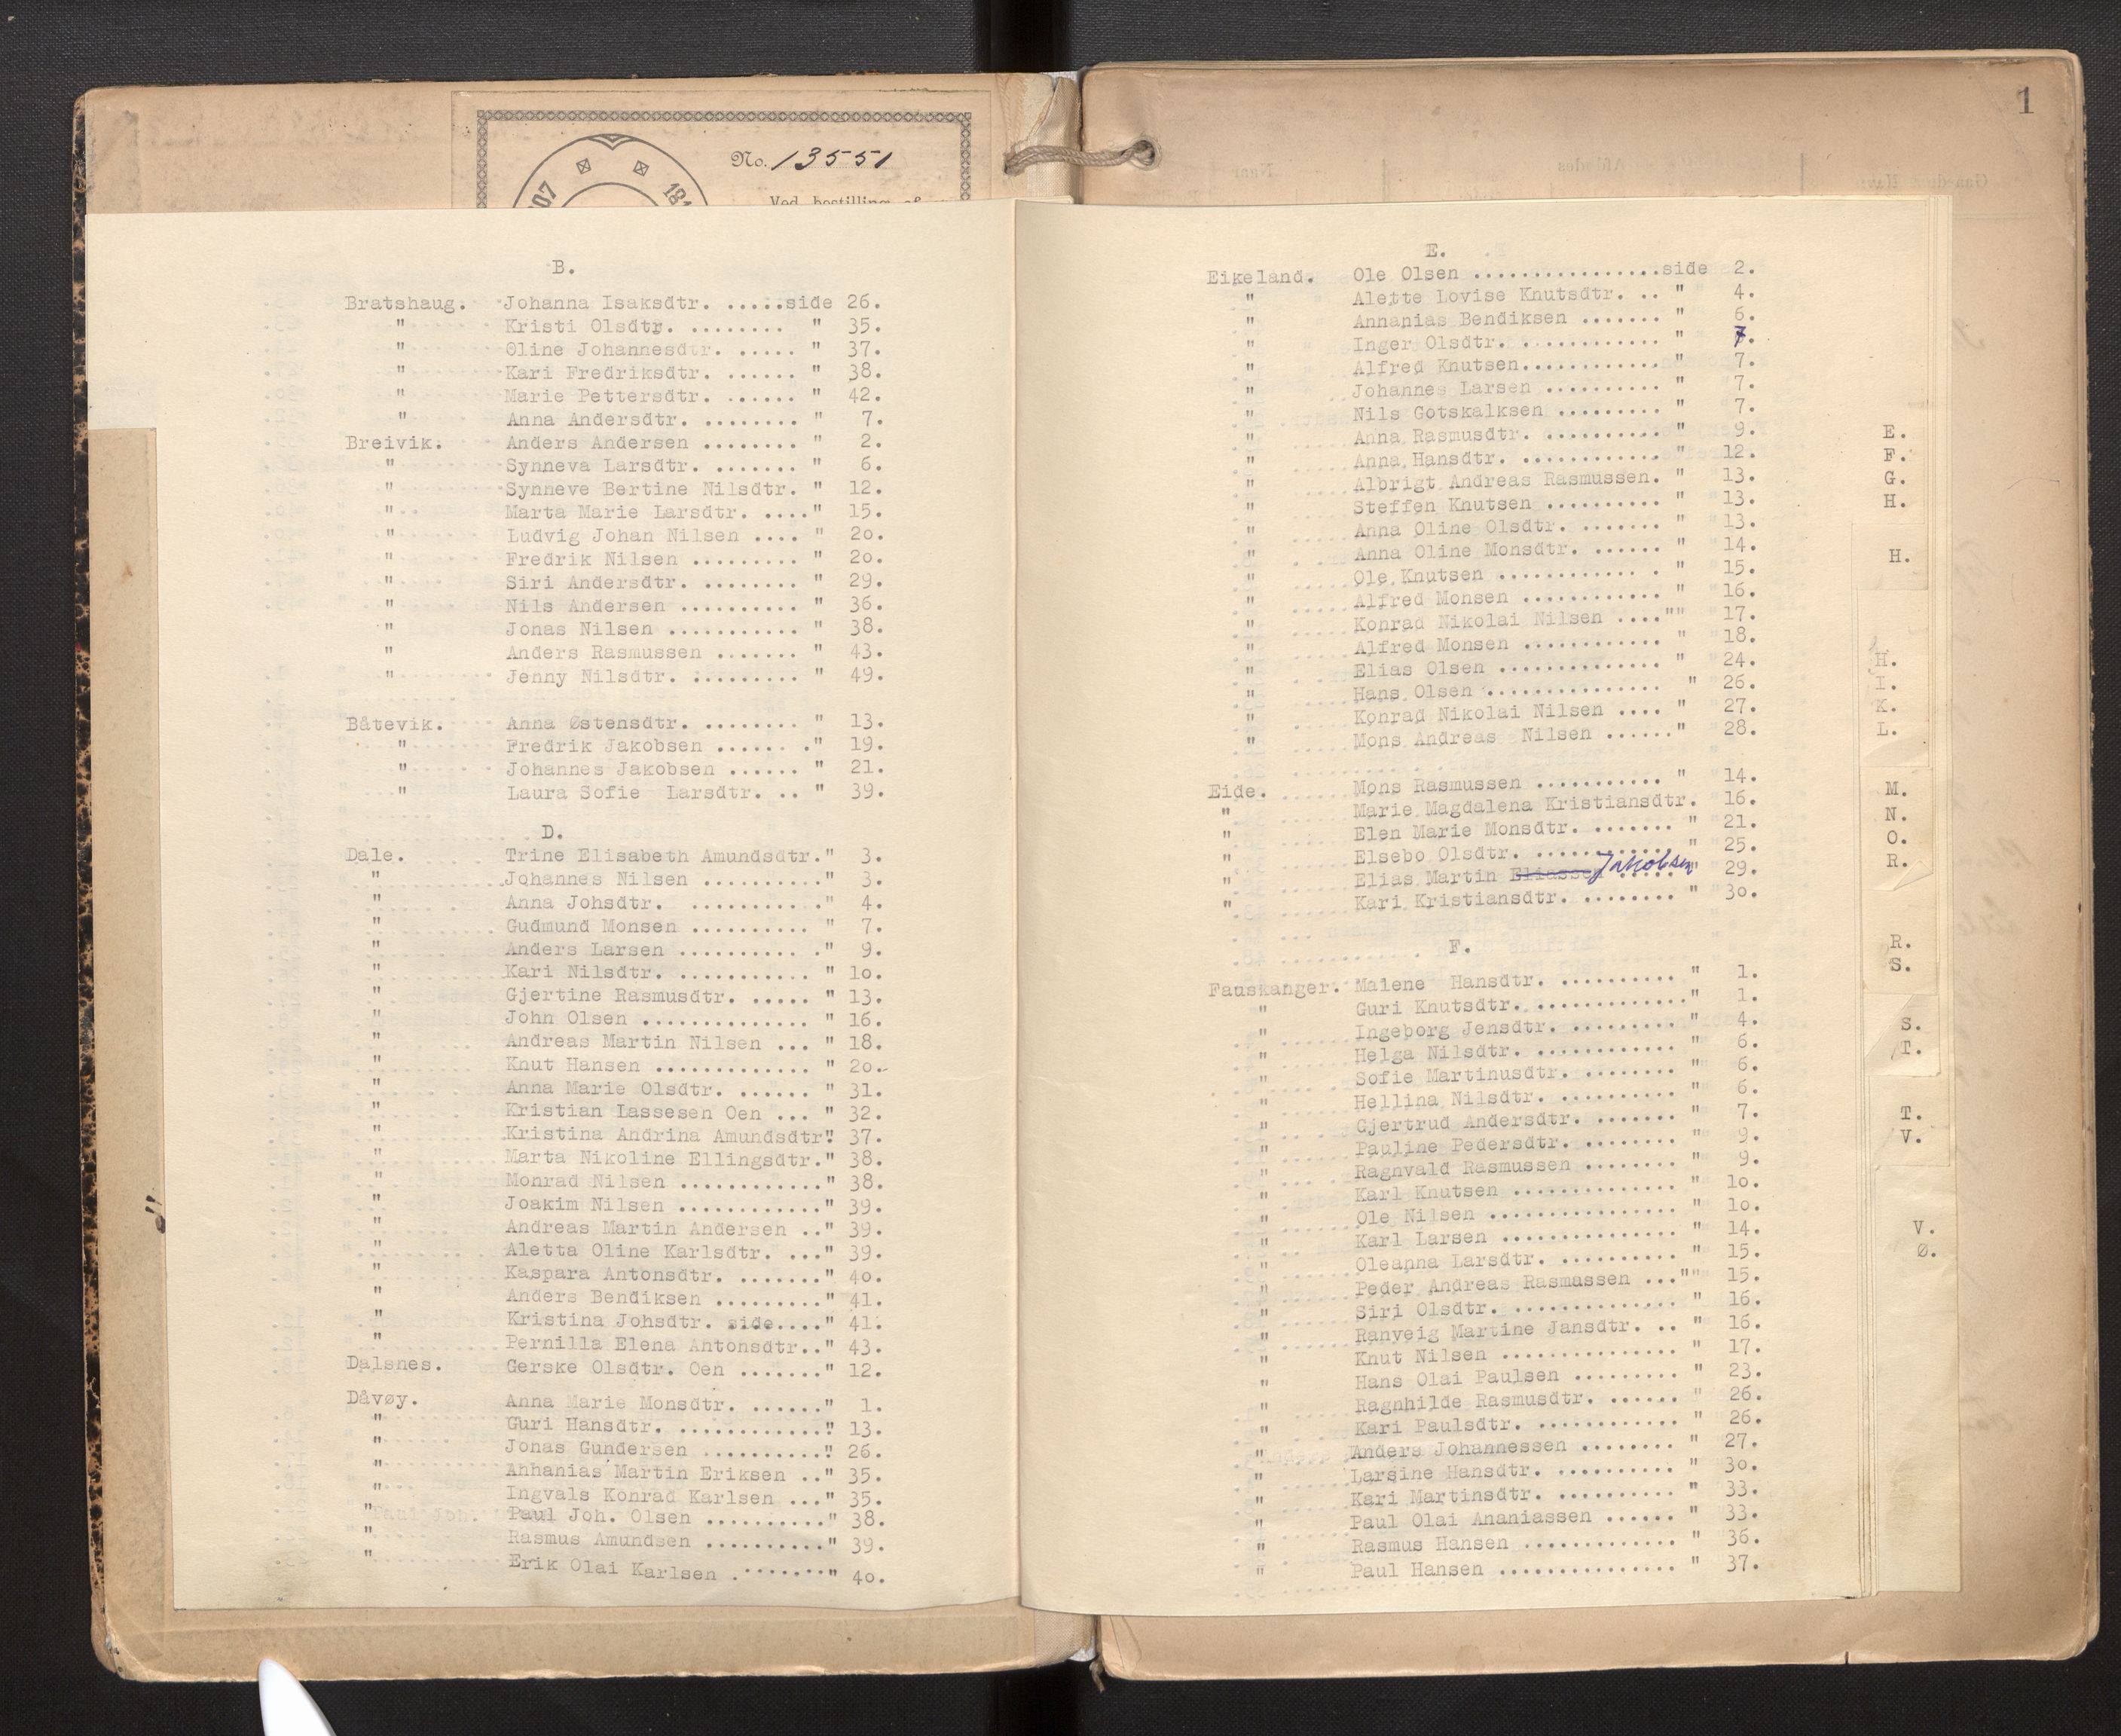 No. 13551
1
Ved bestilling af
B.
Bratshaug. Johanna Isaksdtr. .....side 26.
" Kristi Olsdtr. ........ " 35.
" Oline Johannesdtr. ..... " 37.
" Kari Fredriksdtr. ...... " 38.
" Marie Pettersdtr. ...... " 42.
" Anna Andersdtr. ........ " 7.
Breivik. Anders Andersen ........ " 2.
" Synneva Larsdtr. ....... " 6.
" Synneve Bertine Nilsdtr. " 12.
" Marta Marie Larsdtr. ...." 15.
" Ludvig Johan Nilsen .... " 2o.
" Fredrik Nilsen ......... " 2o.
" Siri Andersdtr. ........ " 29.
" Nils Andersen .......... " 36.
" Jonas Nilsen ........... " 38.
" Anders Rasmussen ....... " 43.
" Jenny Nilsdtr. ......... " 49.
Båtevik. Anna Østensdtr. ........ " 13.
" Fredrik Jakobsen ...... ." 19.
" Johannes Jakobsen ...... " 21.
" Laura Sofie Larsdtr. .. " 39.
D.
Dale. Trine Elisabeth Amundsdtr." 3.
" Johannes Nilsen .........." 3.
" Anna Johsdtr. ..........." 4.
" Gudmund Monsen .......... " 7.
" Anders Larsen .......... ." 9.
" Kari Nilsdtr. ........... " 1o.
" Gjertine Rasmusdtr. ..... " 13.
" John Olsen .............. " 16.
" Andreas Martin Nilsen ... " 18.
" Knut Hansen ............. " 2o.
" Anna Marie Olsdtr. ...... " 31.
" Kristian Lassesen Oen ... " 32.
" Kristina Andrina Amundsdtr." 37.
" Marta Nikoline Ellingsdtr." 38.
" Monrad Nilsen ............" 38.
" Joakim Nilsen ............" 39.
" Andreas Martin Andersen .." 39.
" Aletta Oline Karlsdtr. ..." 39.
" Kaspara Antonsdtr. ......." 4o.
" Anders Bendiksen ........." 41.
" Kristina Johsdtr. side...." 41.
" Pernilla Elena Antonsdtr.." 43.
Dalsnes. Gerske Olsdtr. Oen ......." 12.
Dåvøy. Anna Marie Monsdtr. ......" 1.
" Guri Hansdtr. ............" 13.
" Jonas Gundersen .........." 26.
" Ahhanias Martin Eriksen .." 35.
" Ingvals Konrad Karlsen ..." 35.
" Paul Joh. Olsen .........." 38.
" Rasmus Amundsen .........." 39.
" Erik Olai Karlsen ........" 4o.
E.
Eikeland. Ole Olsen ................side 2.
" Alette Lovise Knutsdtr. .. " 4.
" Annanias Bendiksen ....... " 6.
" Inger Olsdtr. ............ " 7.
" Alfred Knutsen............ " 7.
" Johannes Larsen .......... " 7.
" Nils Gotskalksen ......... " 7.
" Anna Rasmusdtr. .......... " 9.
" Anna Hansdtr. ............ " 12.
" Albrigt Andreas Rasmussen. " 13.
" Steffen Knutsen .......... " 13.
" Anna Oline Olsdtr. ....... " 13.
" Anna Oline Monsdtr. ...... " 14.
" Ole Knutsen ............ . " 15.
" Alfred Monsen ............ " 16.
" Konrad Nikolai Nilsen ...."" 17.
" Alfred Monsen ............ " 18.
" Elias Olsen .............. " 24.
" Hans Olsen ............... " 26.
" Konrad Nikolai Nilsen .... " 27.
" Mons Andreas Nilsen ......" 28.
Eide. Mons Rasmussen ........... " 14.
" Marie Magdalena Kristiansdtr. 16.
" Elen Marie Monsdtr. ....... " 21.
" Elsebo Olsdtr. ............ " 25.
" Elias Martin Eliassen Jakobsen ..... " 29.
" Kari Kristiansdtr. ........ " 3o.
F.
Fauskanger. Malene Hansdtr. .......... " 1.
" Guri Knutsdtr. ............." 1.
" Ingeborg Jensdtr. ......... " 4.
" Helga Nilsdtr. ............ " 6.
" Sofie Martinusdtr. ........ " 6.
" Hellina Nilsdtr. .......... " 6.
" Gjertrud Andersdtr. ....... " 7.
" Pauline Pedersdtr. ........ " 9.
" Ragnvald Rasmussen ........ " 9.
" Karl Knutsen .............. " 1o.
" Ole Nilsen ................ " 1o.
" Karl Larsen ............... " 14.
" Oleanna Larsdtr. .......... " 15.
" Peder Andreas Rasmassen ..."" 15.
" Siri Olsdtr. .............. " 16.
" Ranveig Martine Jansdtr. .. " 16.
" Knut Nilsen ............... " 17.
" Hans Olai Paulsen ......... " 23.
" Ragnhilde Rasmusdtr. ...... " 26.
" Kari Paulsdtr. ............ " 26.
" Anders Johannessen ........ " 27.
" Larsine Hansdtr. .......... " 3o.
" Kari Martinsdtr. .......... " 33.
" Paul Olai Ananiassen ...... " 33.
" Rasmus Hansen ............. " 36.
" Paul Hansen ............... " 37.
E.
F.
G.
H.
H.
H.
I.
K.
L.
M.
N.
O.
R.
R.
S.
S.
T.
T.
V.
V.
Ø.